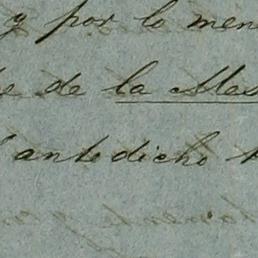 y por lo men
de la Mes
antedicho